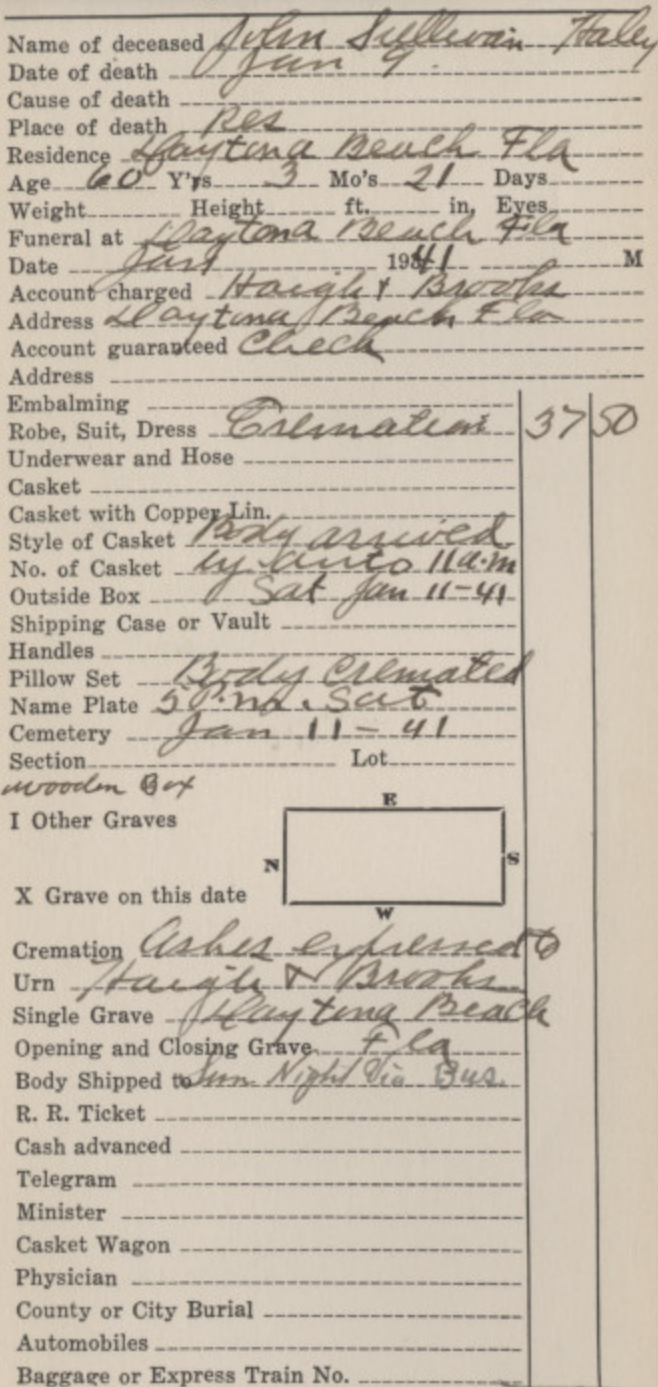 Name of deceased John Sullivan Haley
Date of death Jan 9
Cause of death
Place of death Res
Residence Daytona Beach Fla
Age 60 Y'rs 3 Mo's 21 Days
Weight Height ft. in. Eyes
Funeral at Daytona Beach Fla
Date Jan 1941 M
Account charged Haigh & Brooks
Address Daytona Beach Fla
Account guaranteed Check
Address
Embalming
Robe, Suit, Dress Cremation 37 50
Underwear and Hose
Casket
Casket with Copper Lin.
Style of Casket Body arrived
No. of Casket by auto 11 a.m
Outside Box Sat Jan 11-41
Shipping Case or Vault
Handles
Pillow Set Body Cremated
Name Plate 5 P.m. Sat
Cemetery Jan 11-41
Section Lot
wooden Box
I Other Graves
E
N S
X Grave on this date
W
Cremation Ashes expressed to
Urn Haigh & Brooks
Single Grave Daytona Beach
Opening and Closing Grave Fla
Body Shipped to Sun Night Via Bus.
R. R. Ticket
Cash advanced
Telegram
Minister
Casket Wagon
Physician
County or City Burial
Automobiles
Baggage or Express Train No.